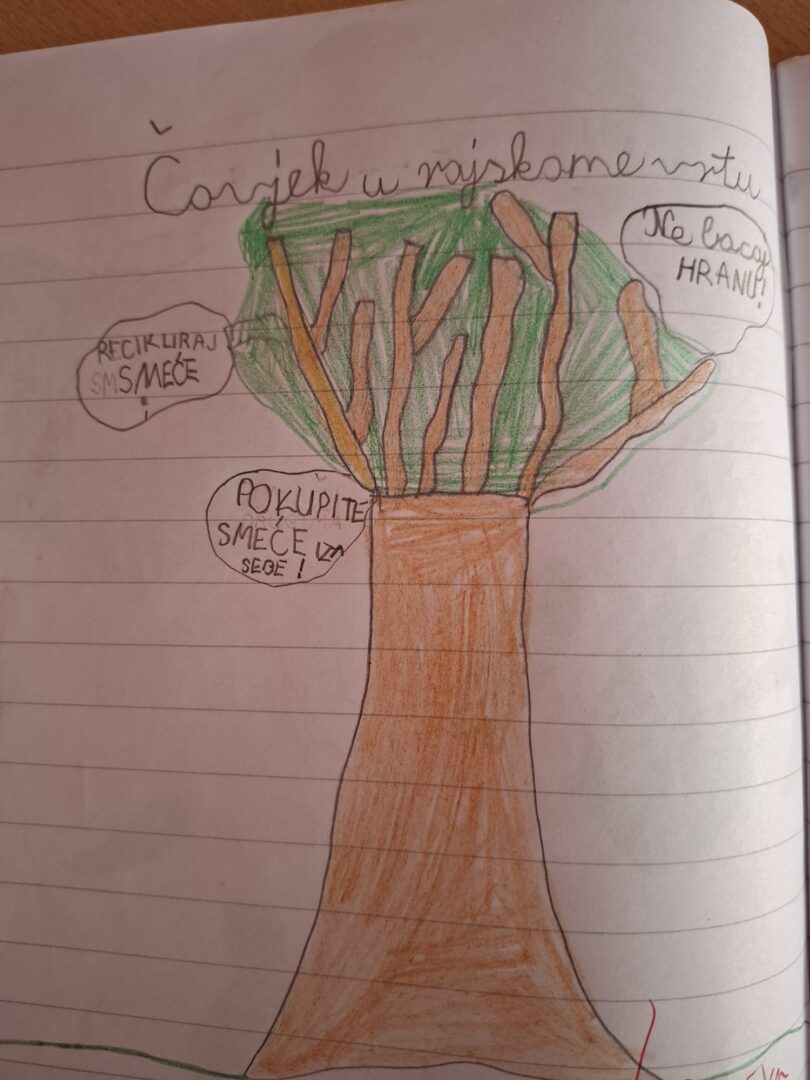 Čovjek u rajskome vrtu
Ne bacaj
HRANU!
RECIKLIRAJ
SMSMEĆE
!
POKUPITE
SMEĆE IZA
SEBE !